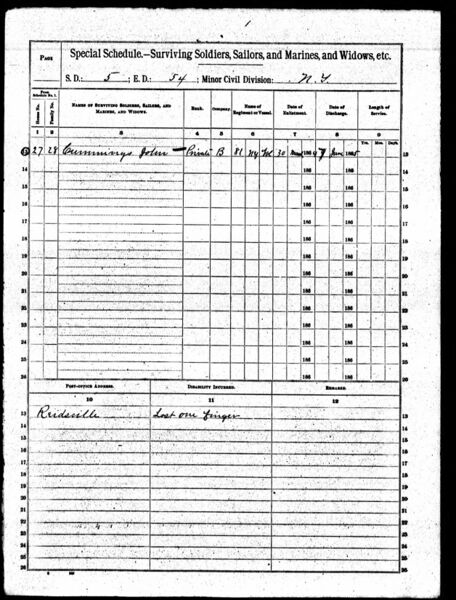 PAGE
Special Schedule.—Surviving Soldiers, Sailors, and Marines, and Widows, etc.
S. D.: 5 ; E. D.: 54 ; Minor Civil Division: N. Y.
From Schedule No. 1.
House No.
Family No.
NAMES OF SURVIVING SOLDIERS, SAILORS, AND MARINES, AND WIDOWS.
Rank.
Company.
Name of Regiment or Vessel.
Date of Enlistment.
Date of Discharge.
Length of Service.
Yrs. Mos. Days.
1 2 3 4 5 6 7 8 9
27 28 Cummings John Private B 81 NY Vol 30 186 7 June 1865 13
14 186 186 14
15 186 186 15
16 186 186 16
17 186 186 17
18 186 186 18
19 186 186 19
20 186 186 20
21 186 186 21
22 186 186 22
23 186 186 23
24 186 186 24
25 186 186 25
26 186 186 26
POST-OFFICE ADDRESS. DISABILITY INCURRED. REMARKS.
10 11 12
13 Reidsville Lost one finger 13
14 14
15 15
16 16
17 17
18 18
19 19
20 20
21 21
22 22
23 23
24 24
25 25
26 26